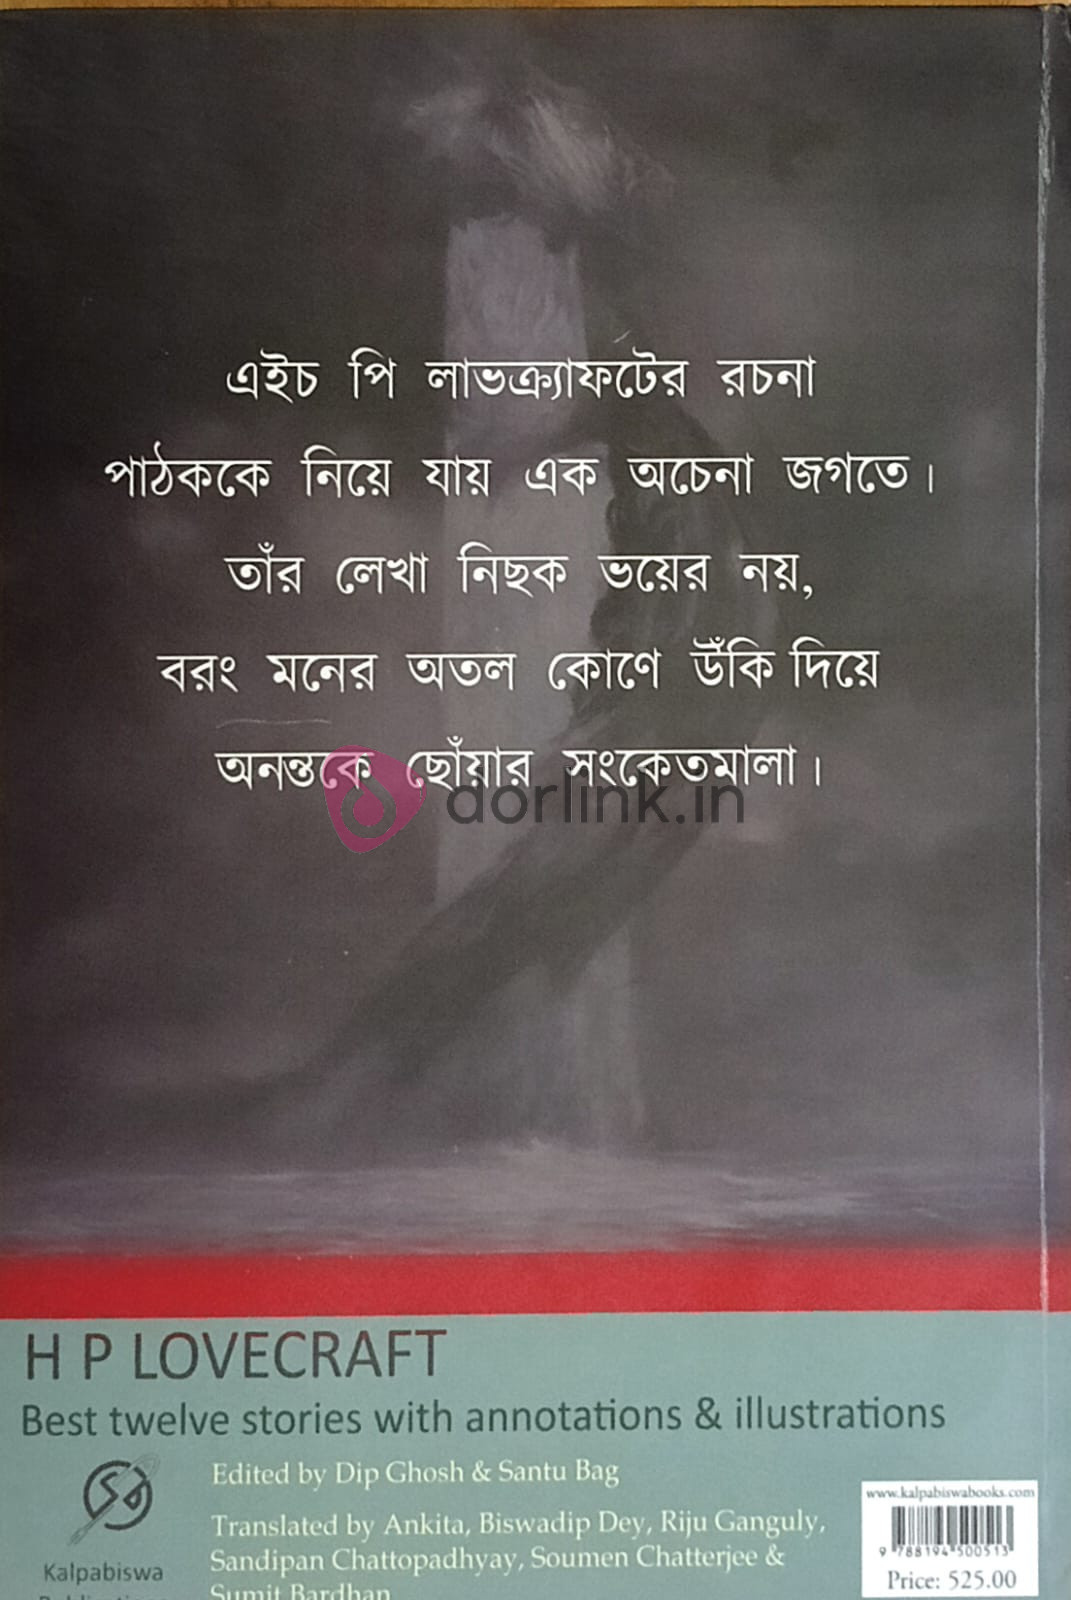 এইচ পি লাভক্র্যাফটের রচনা
পাঠককে নিয়ে যায় এক অচেনা জগতে।
তাঁর লেখা নিছক ভয়ের নয়,
বরং মনের অতল কোণে উঁকি দিয়ে
অনন্তকে ছোঁয়ার সংকেতমালা।
dorlink.in
H P LOVECRAFT
Best twelve stories with annotations & illustrations
Edited by Dip Ghosh & Santu Bag
Translated by Ankita, Biswadip Dey, Riju Ganguly,
Sandipan Chattopadhyay, Soumen Chatterjee &
Sumit Bardhan
Kalpabiswa
Publications
www.kalpabiswabooks.com
9 788194 500513
Price: 525.00